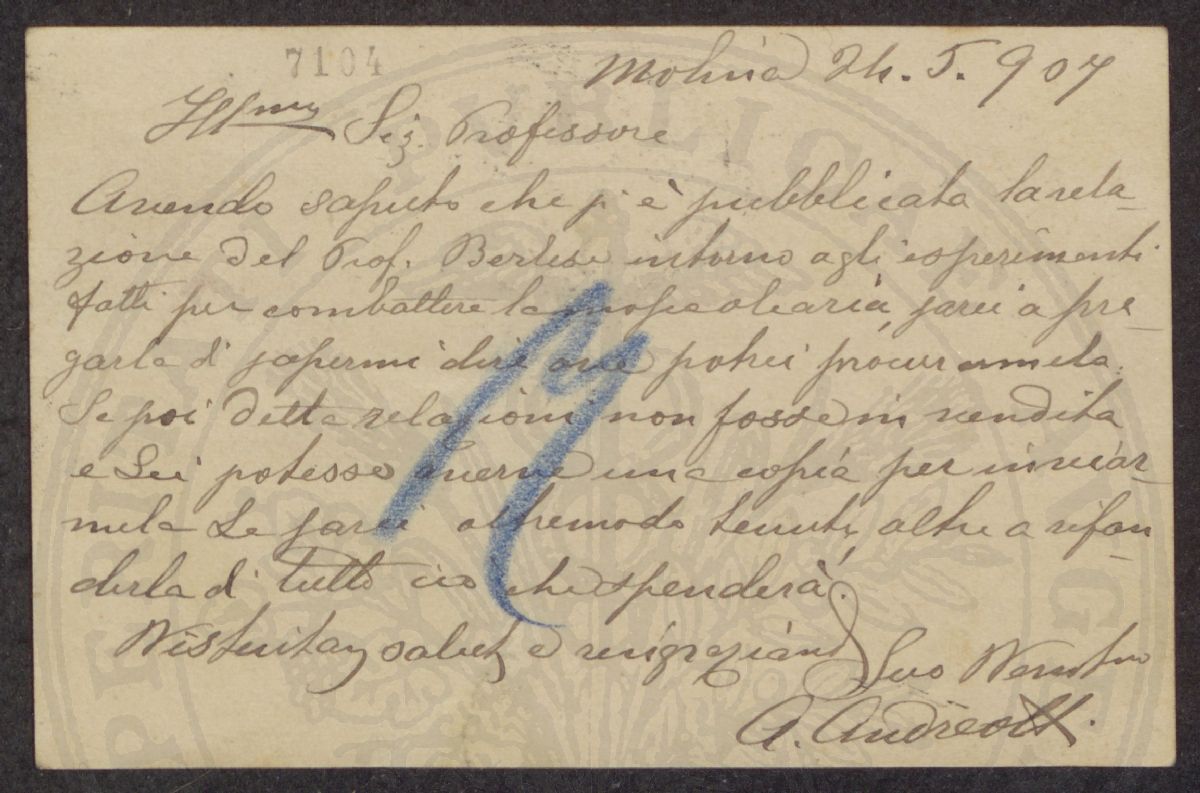 7104
Molina 24. 5. 907
Illmo Sig. Professore
Avendo saputo che si è pubblicata la rela-
zione del Prof. Berlese intorno agli esperimenti
fatti per combattere la mosca olearia, sarei a pre-
garla di sapermi dire ove potrei procurarmela.
Se poi dette relazioni non fosse in vendita
e Lei potesse averne una copia per inviar-
mela Le sarei oltremodo tenuto, oltre a rifon-
derla di tutto ciò che spenderà.
Distintam saluti e ringraziamti
Suo
A. Andreotti.